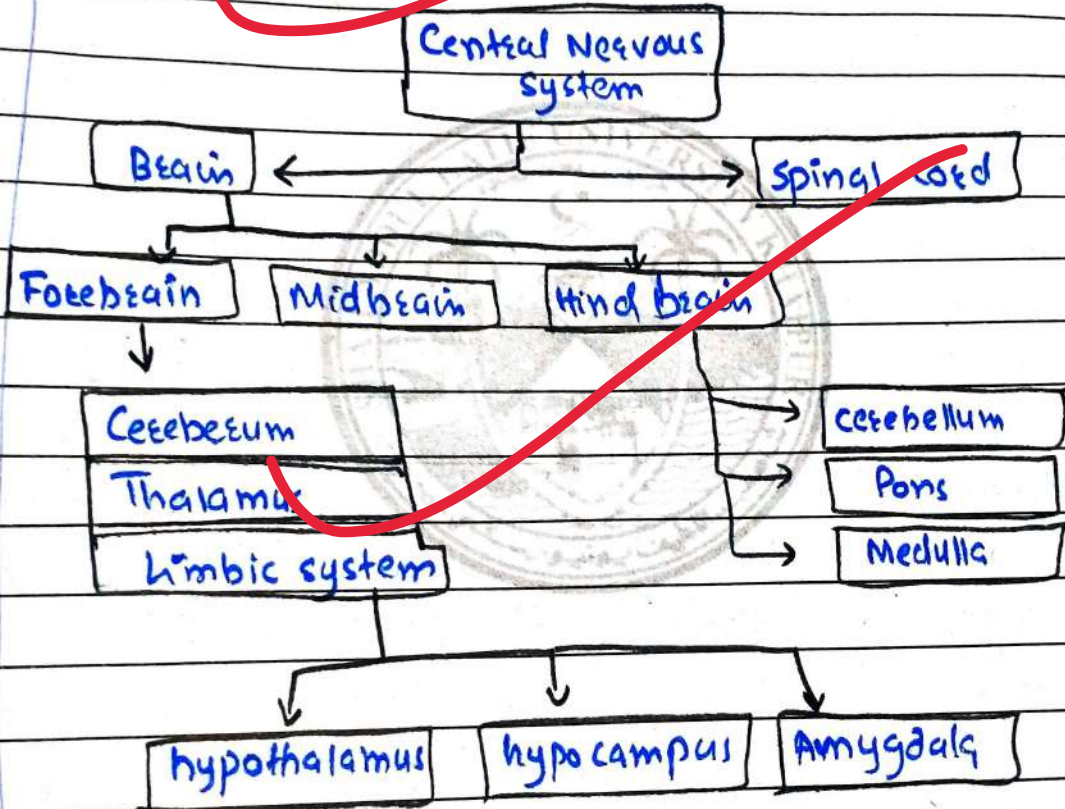 Central Nervous
system
Brain
Spinal Cord
Forebrain
Midbrain
Hind Brain
Cerebrum
Thalamus
Limbic system
cerebellum
Pons
Medulla
hypothalamus
hypocampus
Amygdala